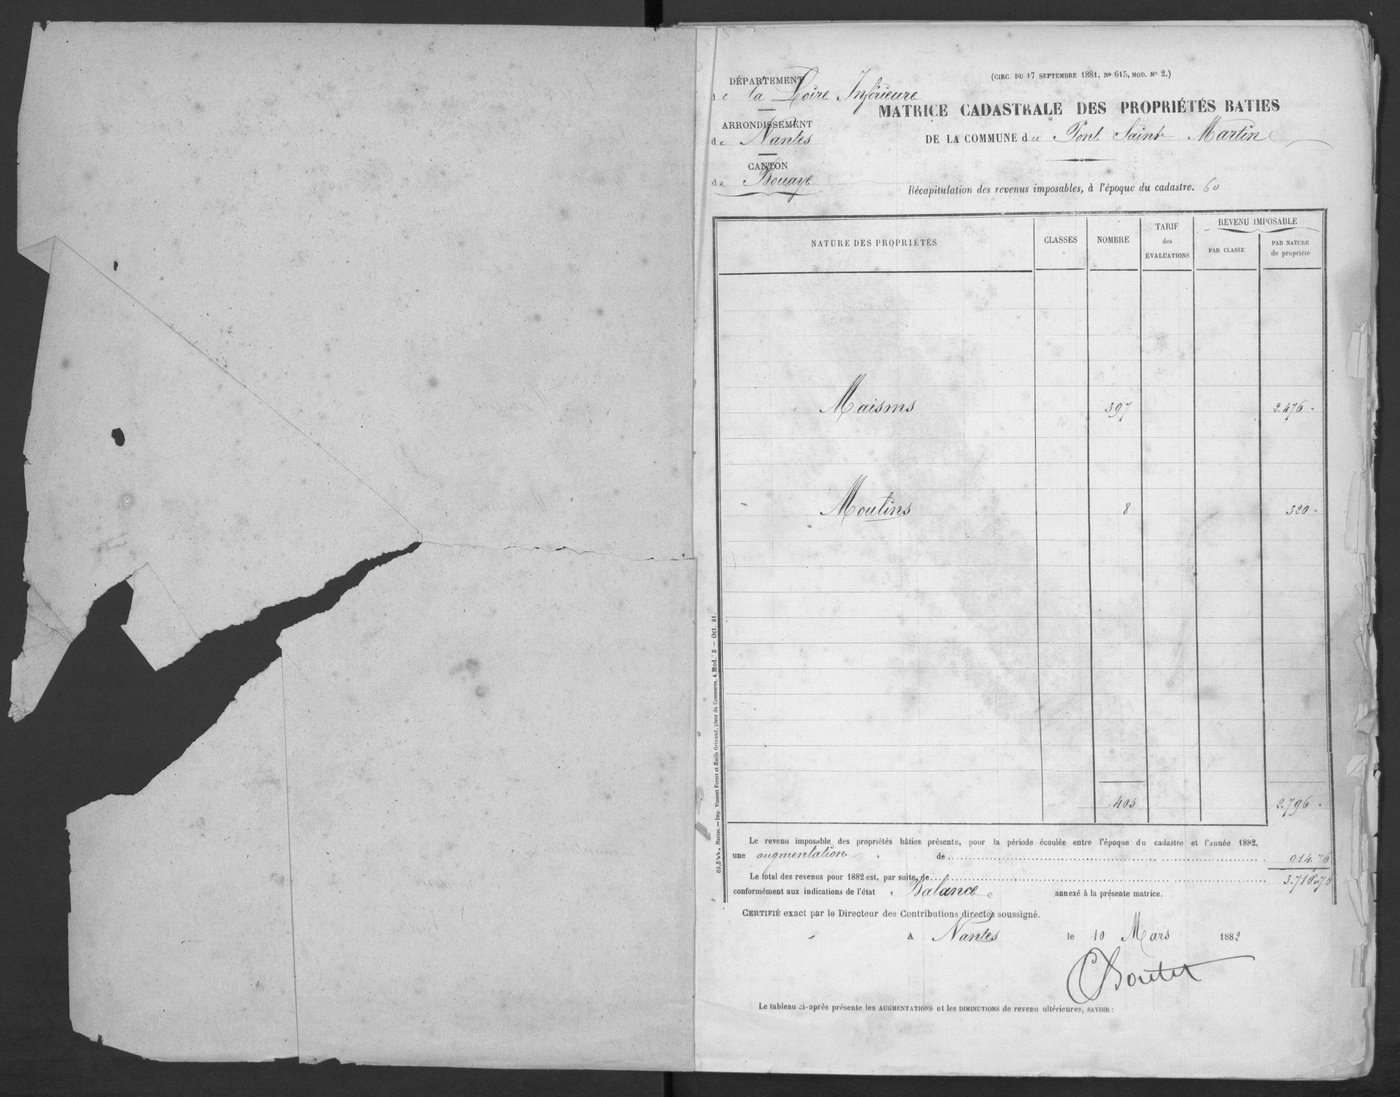 (CIRC. DU 17 SEPTEMBRE 1881, No 615, MOD. No 2.)
DÉPARTEMENT
de la Loire Inférieure
ARRONDISSEMENT
de Nantes
CANTON
de Bouaye
MATRICE CADASTRALE DES PROPRIÉTÉS BATIES
DE LA COMMUNE de Pont Saint Martin
Récapitulation des revenus imposables, à l'époque du cadastre. 60
NATURE DES PROPRIÉTÉS CLASSES NOMBRE TARIF des ÉVALUATIONS REVENU IMPOSABLE
PAR CLASSE PAR NATURE de propriété
Maisons 397 2.476 -
Moulins 8 320 -
405 2.796 -
Le revenu imposable des propriétés bâties présente, pour la période écoulée entre l'époque du cadastre et l'année 1882,
une augmentation de 914.76
Le total des revenus pour 1882 est, par suite, de 3.710.76
conformément aux indications de l'état Balance annexé à la présente matrice.
CERTIFIÉ exact par le Directeur des Contributions directes soussigné.
A Nantes le 10 Mars 1882
Le tableau ci-après présente les AUGMENTATIONS et les DIMINUTIONS de revenu ultérieures, SAVOIR :
Nantes. — Imp. Vincent Forest et Émile Grimaud, place du Commerce, 4. Mod. 3 — Oct. 81.